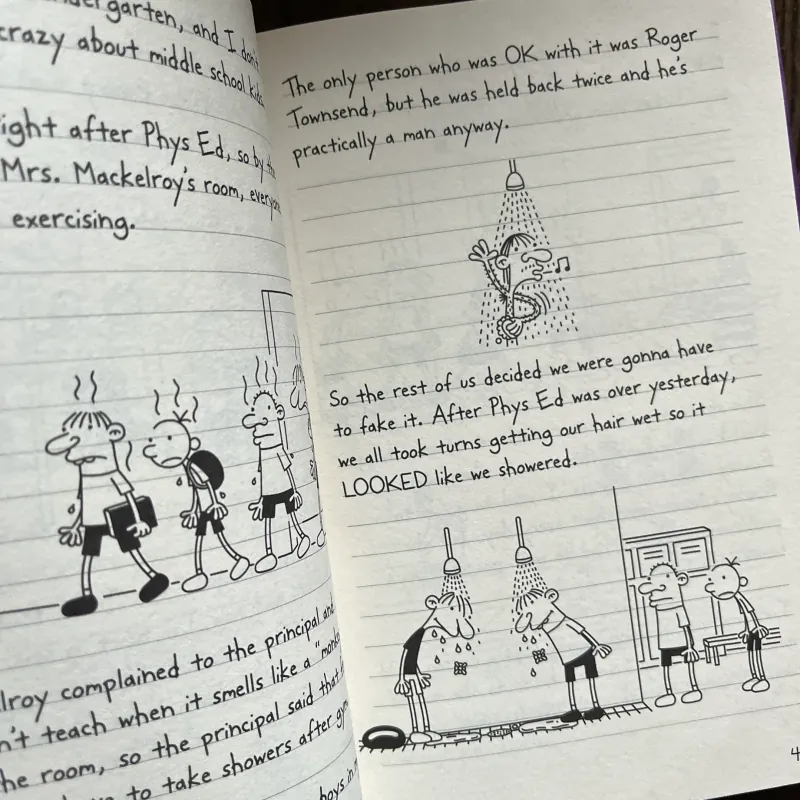 garten, and I don't
crazy about middle school kids
after Phys Ed, so by
Mrs. Mackelroy's room,
exercising.
complained to the principal and
teach when it smells like a
the room, so the principal said that
to take showers after
boys in
The only person who was OK with it was Roger
Townsend, but he was held back twice and he's
practically a man anyway.
So the rest of us decided we were gonna have
to fake it. After Phys Ed was over yesterday,
we all took turns getting our hair wet so it
LOOKED like we showered.